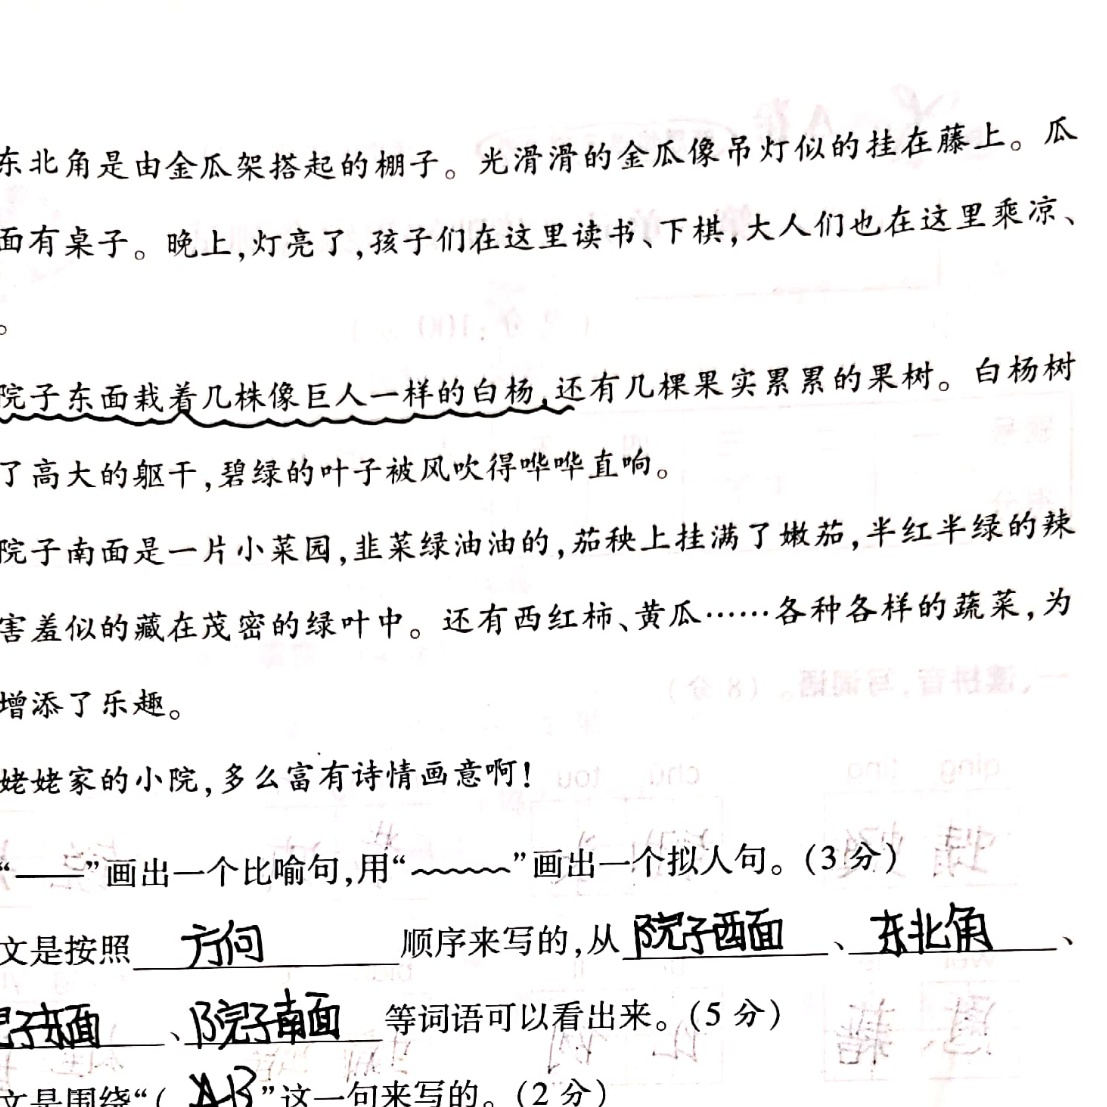 东北角是由金瓜架搭起的棚子。光滑滑的金瓜像吊灯似的挂在藤上。瓜
面有桌子。晚上,灯亮了,孩子们在这里读书、下棋,大人们也在这里乘凉、
。
院子东面栽着几株像巨人一样的白杨,还有几棵果实累累的果树。白杨树
了高大的躯干,碧绿的叶子被风吹得哗哗直响。
院子南面是一片小菜园,韭菜绿油油的,茄秧上挂满了嫩茄,半红半绿的辣
害羞似的藏在茂密的绿叶中。还有西红柿、黄瓜……各种各样的蔬菜,为
增添了乐趣。
姥姥家的小院,多么富有诗情画意啊!
“——”画出一个比喻句,用“﹏﹏”画出一个拟人句。(3分)
文是按照 方向 顺序来写的,从 院子西面 、 东北角 、
子东面 、院子南面 等词语可以看出来。(5分)
文是围绕“( B ”这一句来写的。(2分)
一、读拼音,写词语。(8分)